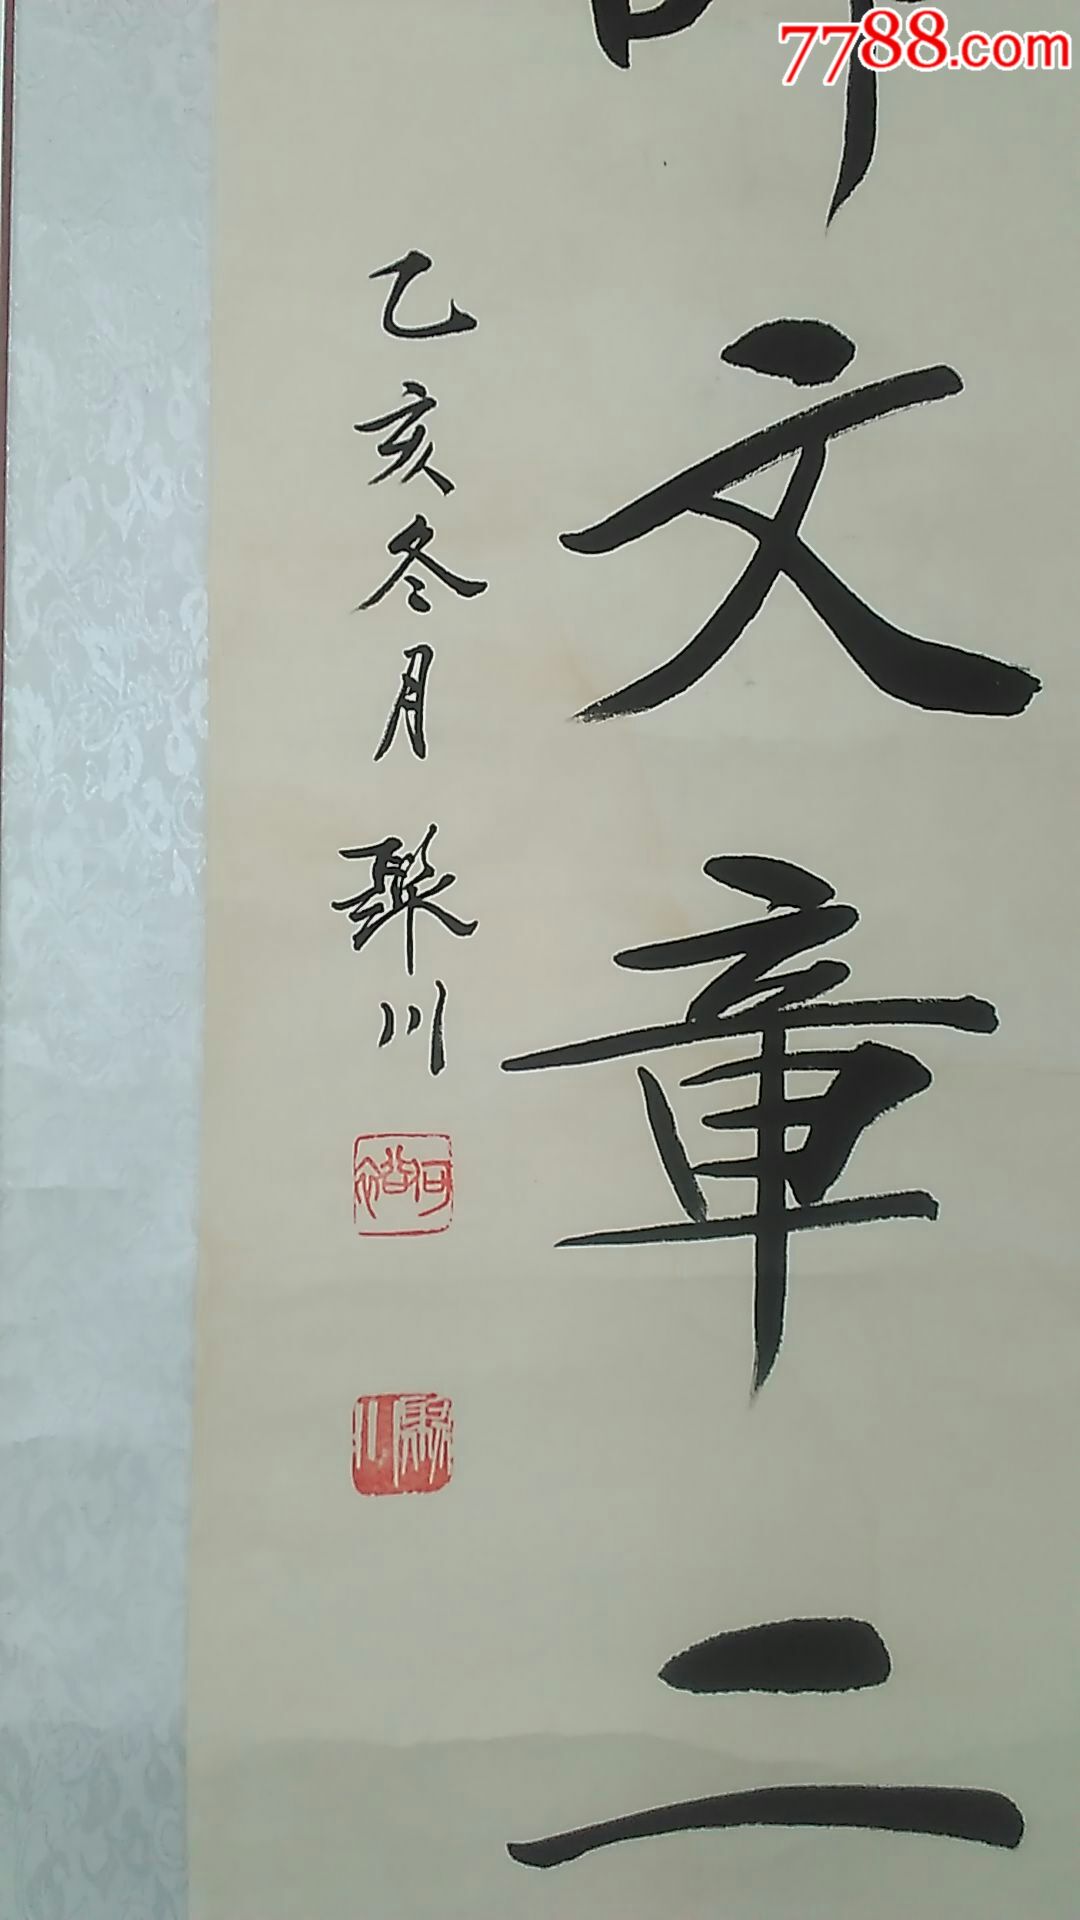 7788.com
文章二
乙亥冬月 聚川